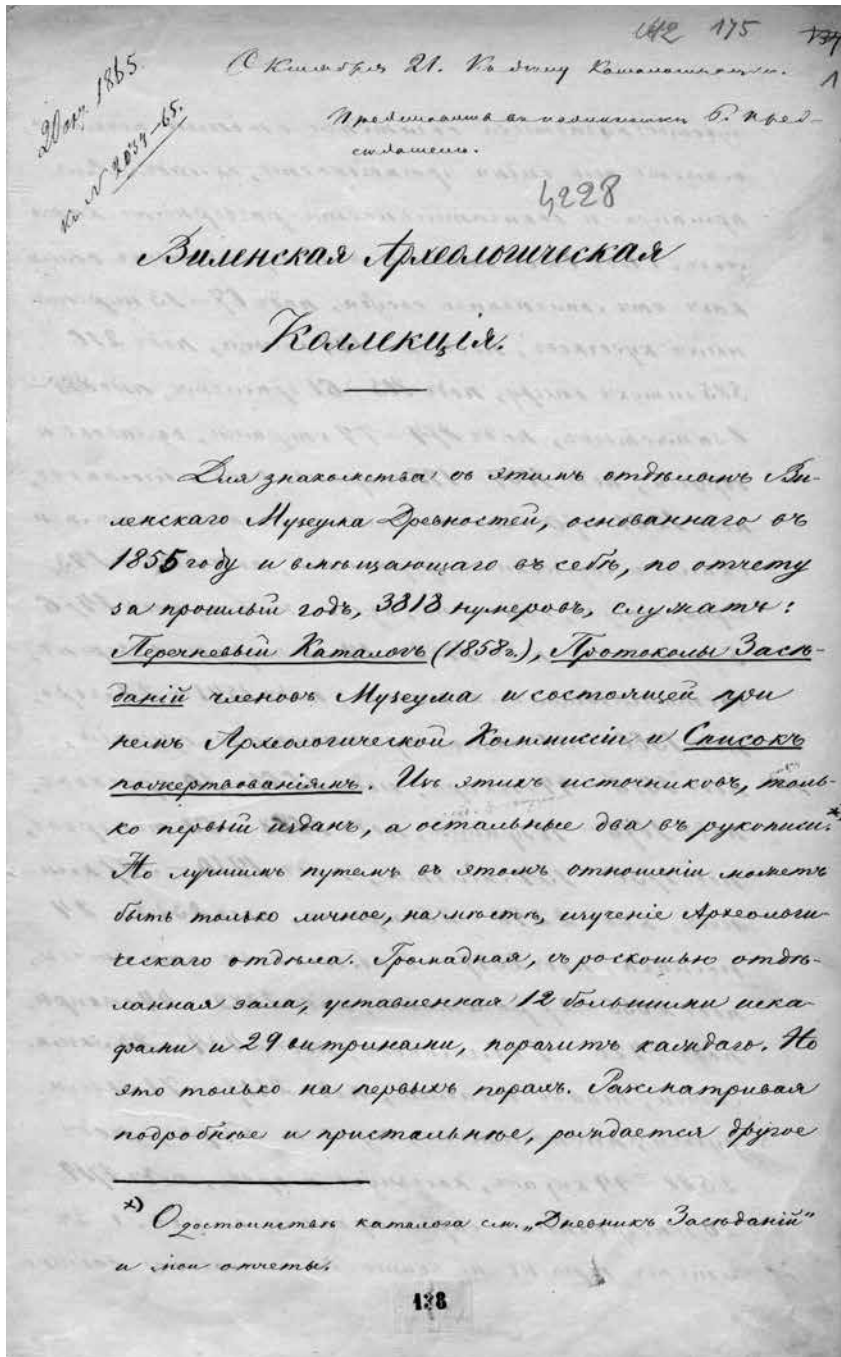 442 175
1
20 окт. 1865.
Кн. N 2034-65.
Октября 21. Къ дѣлу
Представить въ
4228
Виленская Археологическая
Коллекція.
Для знакомства съ этимъ отдѣломъ Ви-
ленскаго Музеума Древностей, основаннаго въ
1855 году и вмѣщающаго въ себѣ, по отчету
за прошлый годъ, 3818 нумеровъ, служатъ:
Перечневый Каталогъ (1858 г.), Протоколы Засѣ-
даній членовъ Музеума и состоящей при
немъ Археологической Коммиссіи и Списокъ
пожертвованіямъ. Изъ этихъ источниковъ, толь-
ко первый изданъ, а остальные два въ рукописи.*)
Но лучшимъ путемъ въ этомъ отношеніи можетъ
быть только личное, на мѣстѣ, изученіе Археологи-
ческаго отдѣла. Громадная, съ роскошью отдѣ-
ланная зала, уставленная 12 большими шка-
фами и 29 витринами, поразитъ каждаго. Но
это только на первыхъ порахъ. Разсматривая
подробнѣе и пристальнѣе, рождается другое
*) О достоинствѣ каталога см. „Дневникъ Засѣданій"
и мои отчеты.
138